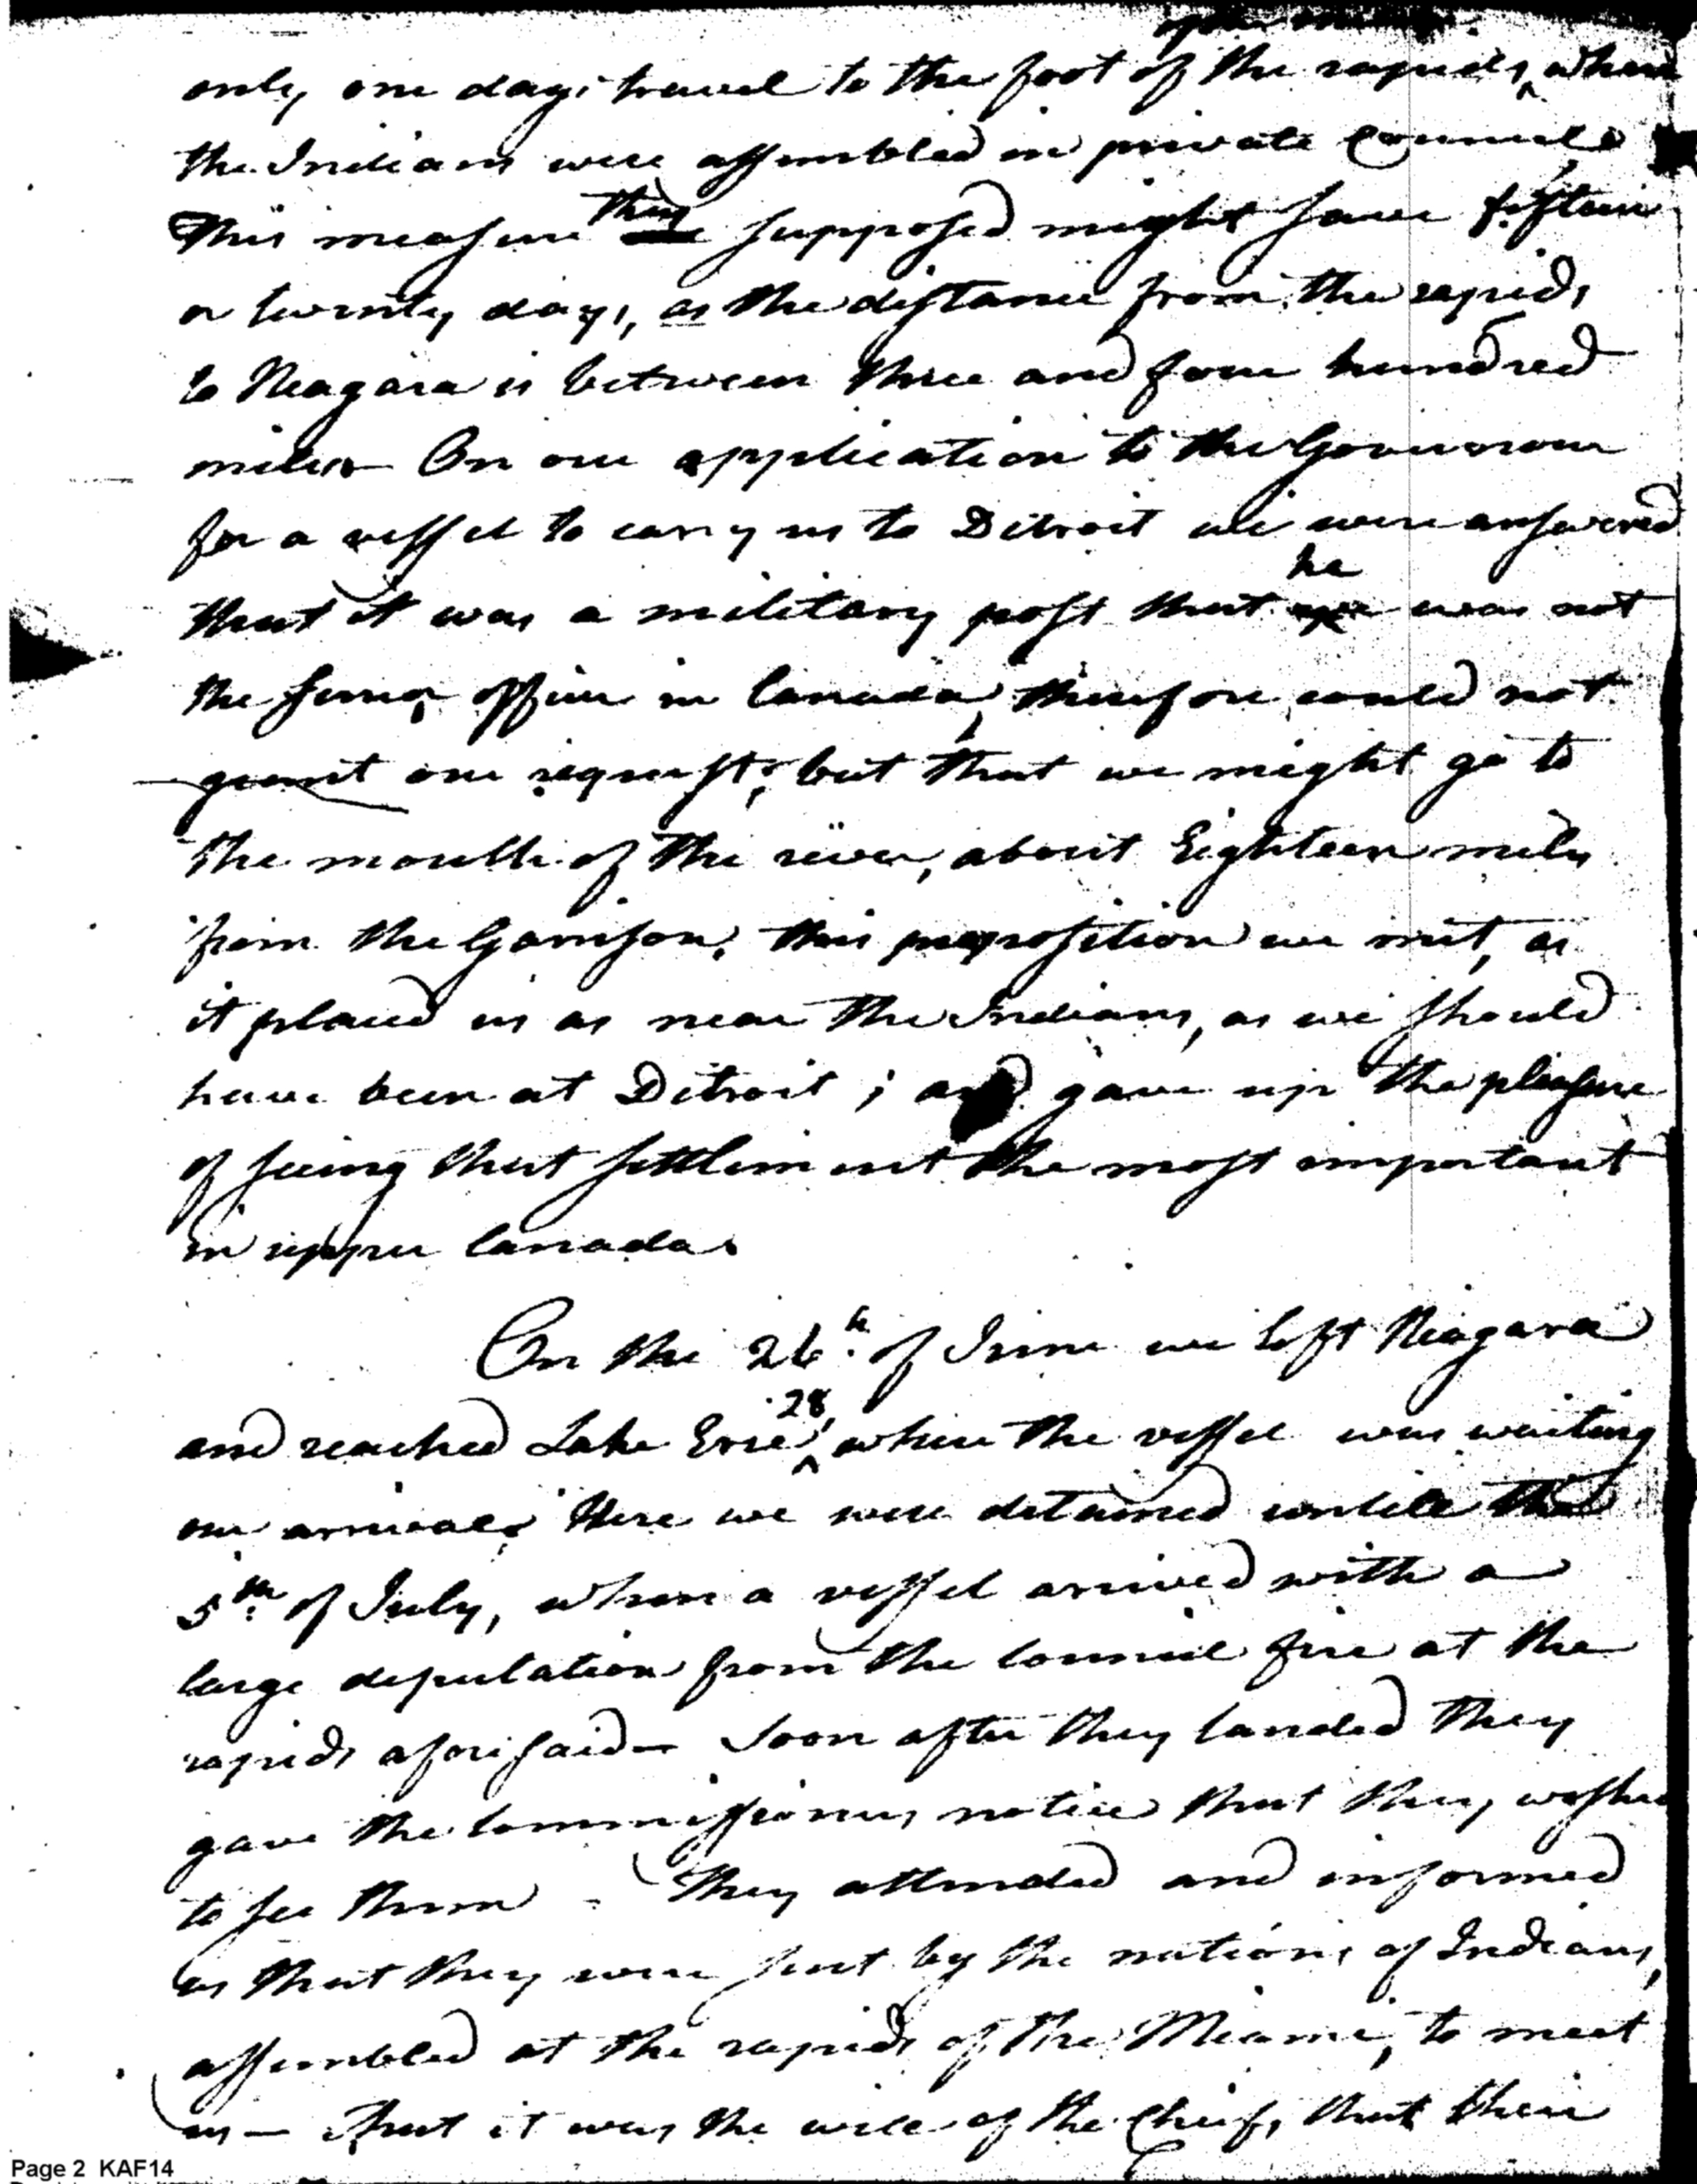 only one days travel to the foot of the rapids, where
the Indians were assembled in private Council
This measure they supposed might save fifteen
or twenty days, as the distance from the rapids
to Neagara is between three and four hundred
miles — On our application to the Governour
for a vessel to carry us to Detroit we were answered
he
that it was a military post that was not
the senior officer in Canada, therefore could not
grant our request; but that we might go to
the mouth of the river, about Eighteen miles
from the Garrison, this proposition we met, as
it placed us as near the Indians, as we should
have been at Detroit; and gave up the pleasure
of seeing that settlement the most important
in upper Canada.
On the 26th of June we left Neagara
28,
and reached Lake Erie, where the vessel was waiting
our arrival; Here we were detained untill the
5th of July, when a vessel arrived with a
large deputation from the Council fire at the
rapids aforesaid — Soon after they landed they
gave the Commissioners notice that they wished
to see them - They attended and informed
us that they were sent by the nations of Indians,
assembled at the rapids of the Meame, to meet
us — That it was the will of the Cheifs, that their
Page 2 KAF14